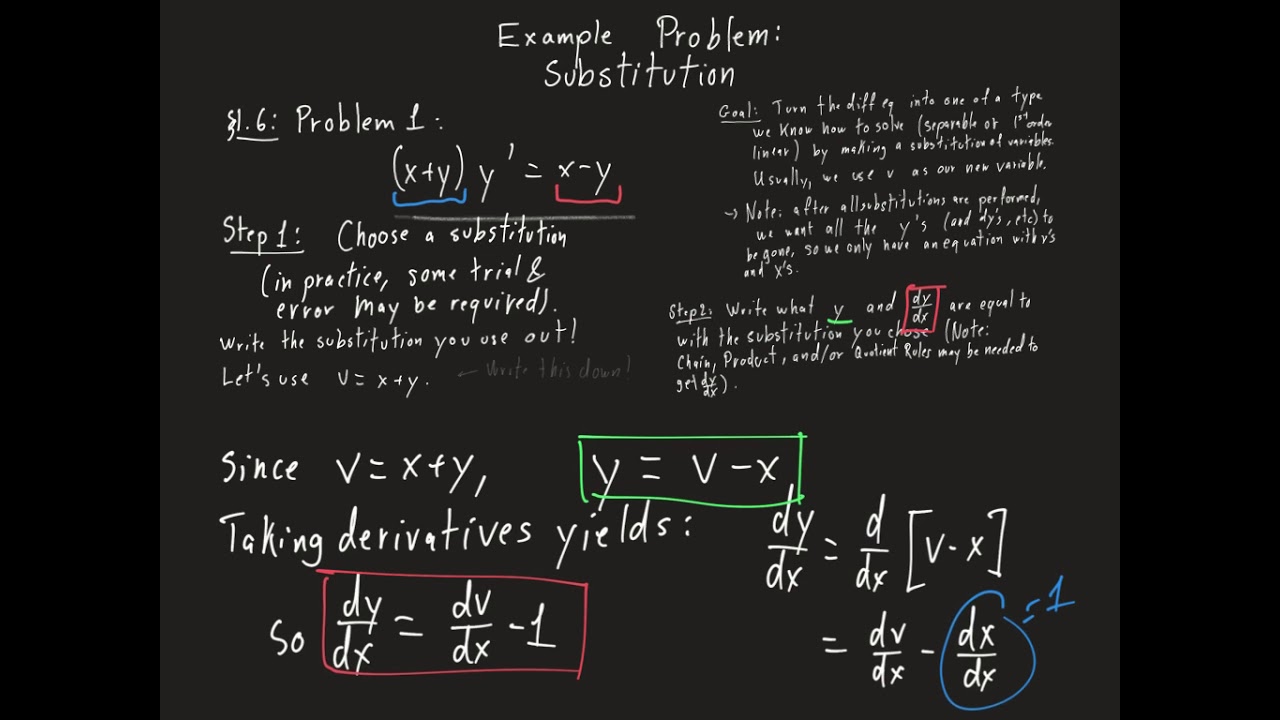 Example Problem:
Substitution
§1.6: Problem 1:
(x+y) y' = x-y
Step 1: Choose a substitution
(in practice, some trial &
error may be required).
Write the substitution you use out!
Let's use v = x+y. ← Write this down!
Goal: Turn the diff eq into one of a type
we know how to solve (separable or 1st order
linear) by making a substitution of variables.
Usually, we use v as our new variable.
→ Note: after all substitutions are performed,
we want all the y's (and dy's, etc) to
be gone, so we only have an equation with v's
and x's.
Step 2: Write what y and dy/dx are equal to
with the substitution you chose (Note:
Chain, Product, and/or Quotient Rules may be needed to
get dy/dx).
Since v = x+y, y = v-x
Taking derivatives yields: dy/dx = d/dx [v-x]
= dv/dx - dx/dx = 1
So dy/dx = dv/dx - 1